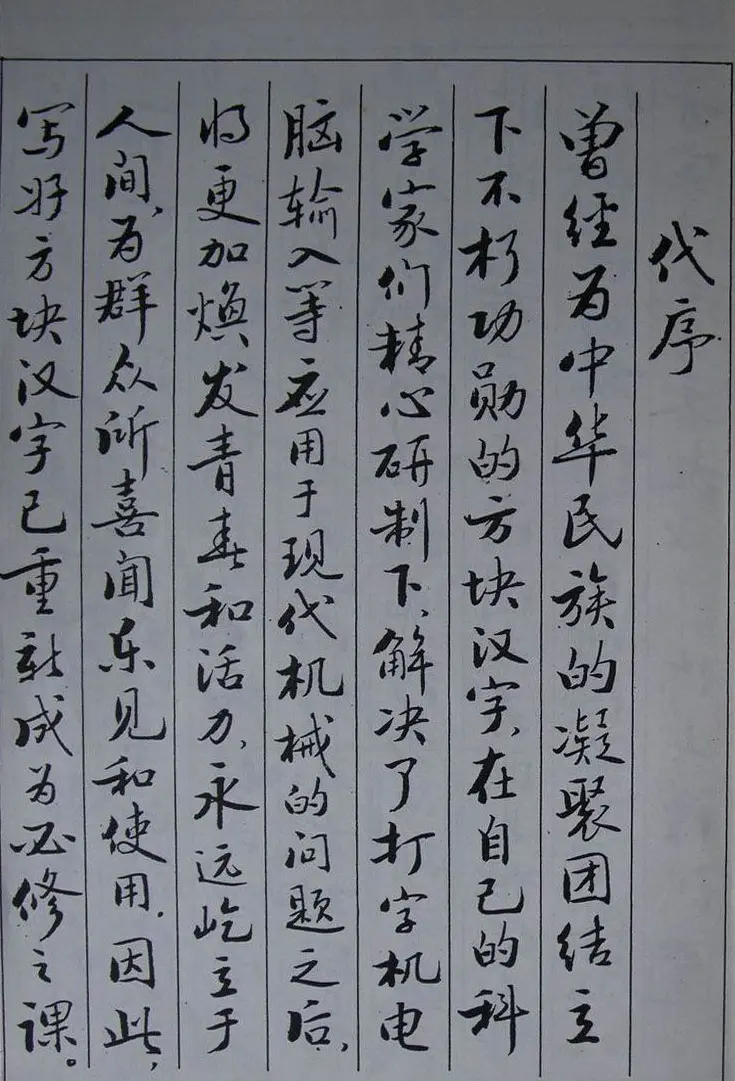 代序
曾经为中华民族的凝聚团结立
下不朽功勋的方块汉字，在自己的科
学家们精心研制下，解决了打字机电
脑输入等应用于现代机械的问题之后，
将更加焕发青春和活力，永远屹立于
人间，为群众所喜闻乐见和使用。因此，
写好方块汉字已重新成为必修之课。